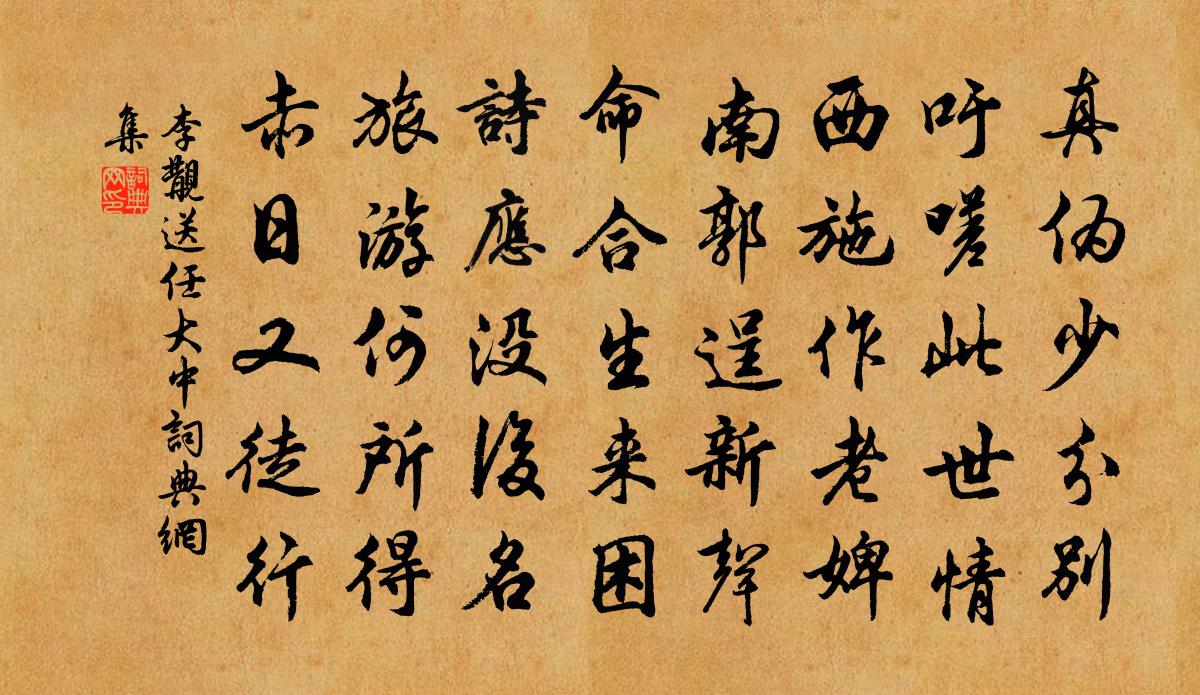 真伪少分别
吁嗟此世情
西施作老婢
南郭逞新聲
命合生来困
詩應没後名
旅游何所得
赤日又徒行
李覯送任大中詞典網
集
詞典
网印